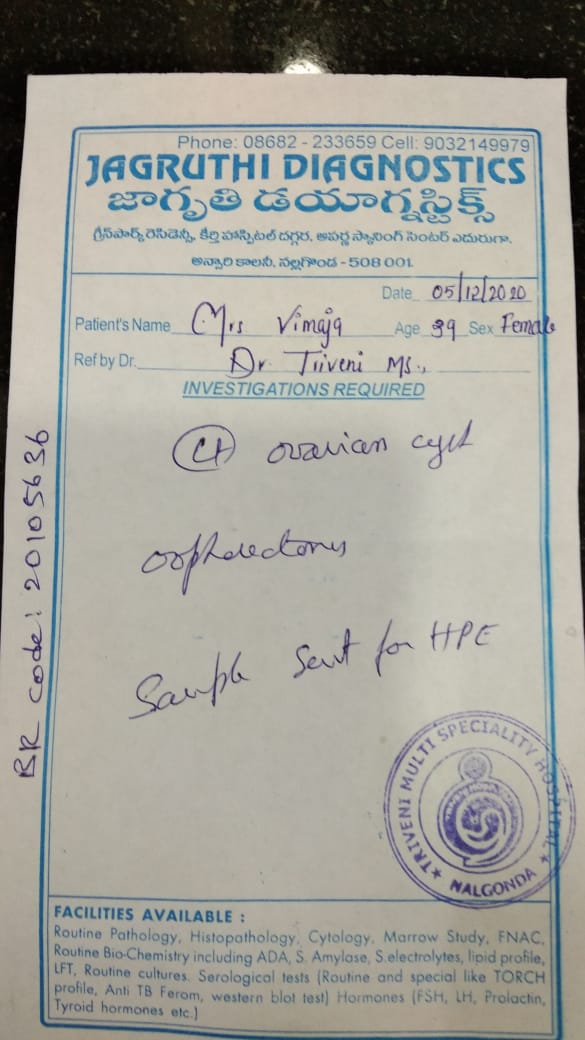 Phone: 08682 - 233659 Cell: 9032149979
JAGRUTHI DIAGNOSTICS
జాగృతి డయాగ్నస్టిక్స్
గ్రీన్‌పార్క్ రెసిడెన్సీ, కీర్తి హాస్పిటల్ దగ్గర, అపర్ణ స్కానింగ్ సెంటర్ ఎదురుగా,
అన్సారి కాలనీ, నల్లగొండ - 508 001.
Date 05/12/2020
Patient's Name Mrs Vimaja Age 39 Sex Female
Ref by Dr. Dr. Triveni MS.,
INVESTIGATIONS REQUIRED
ovarian cyst
oophorectomy
Sample sent for HPE
BR code: 20105636
TRIVENI MULTI SPECIALITY HOSPITAL
NALGONDA
FACILITIES AVAILABLE :
Routine Pathology, Histopathology, Cytology, Marrow Study, FNAC,
Routine Bio-Chemistry including ADA, S. Amylase, S.electrolytes, lipid profile,
LFT, Routine cultures. Serological tests (Routine and special like TORCH
profile, Anti TB Ferom, western blot test) Hormones (FSH, LH, Prolactin,
Tyroid hormones etc.)